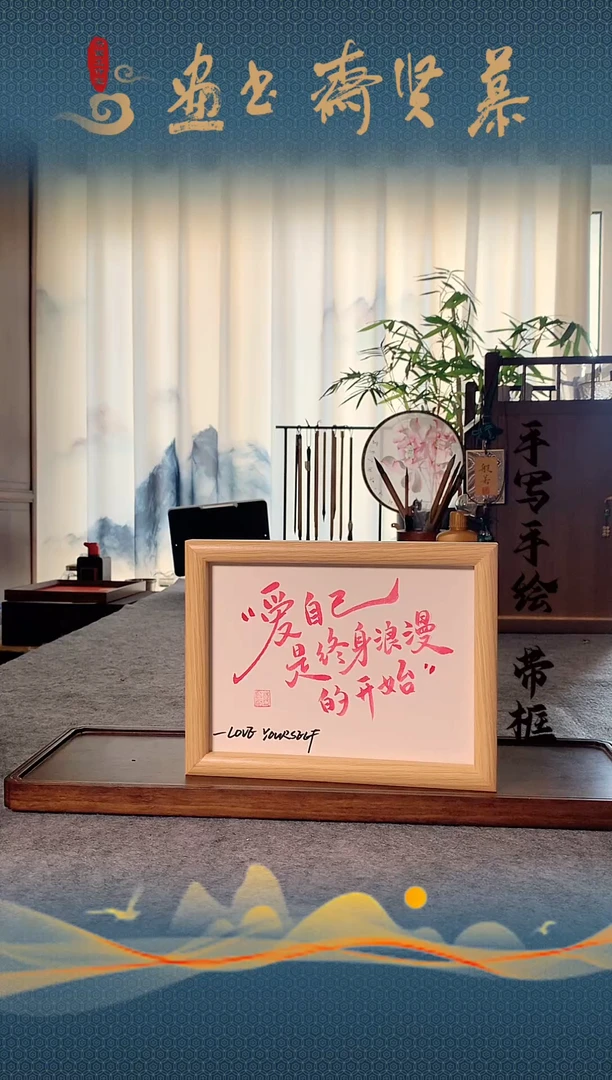 慕贤齋书畫
手写手绘
带框
般若
“爱自己
是终身浪漫
的开始”
—LOVE YOURSELF